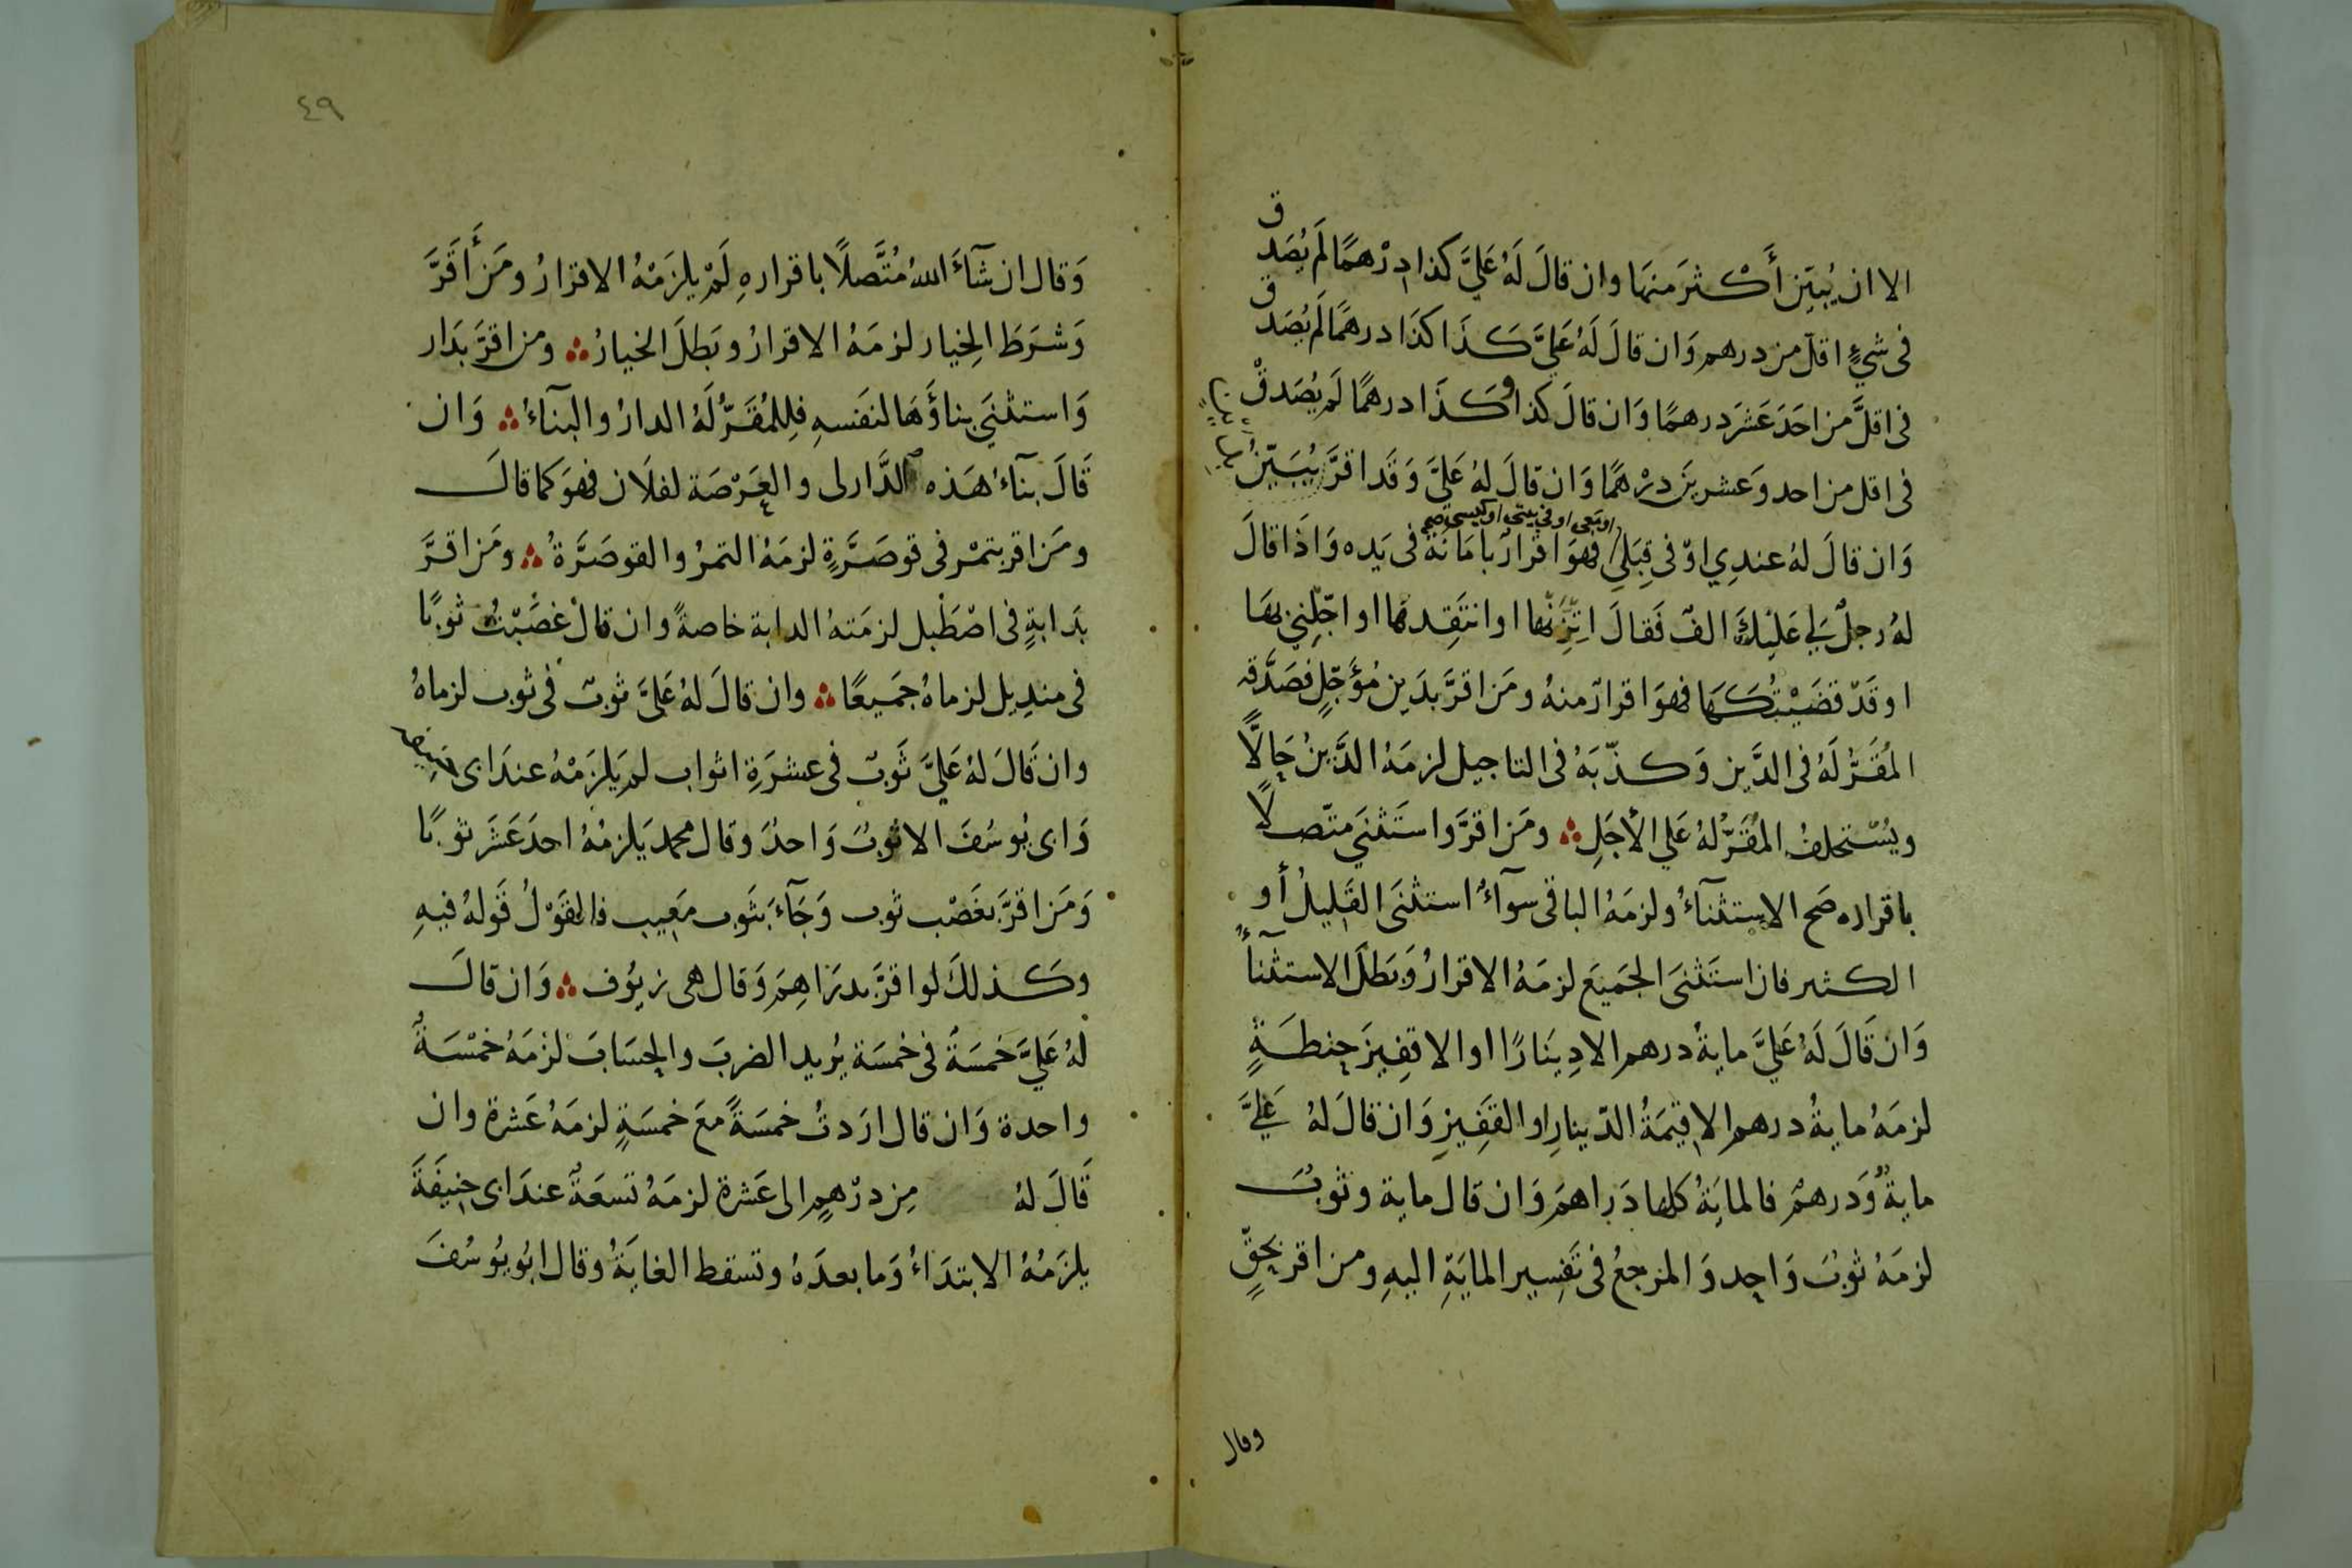 الا ان يُبيّن أَكْثَر منهَا وان قالَ لَهُ عَلَيَّ كذا دِرْهمًا لَم يُصَدق
فى شيءٍ اقلّ من درهم وَان قالَ لَهُ عَلَيَّ كَذَا كذَا درهمًا لَم يُصَدق
فى اقلَّ من احَدَ عَشَرَ درهمًا وَان قالَ كذا وكَذَا درهمًا لَم يُصَدقْ
فى اقل من احد وَعشرينَ درْهمًا وَان قالَ لهُ عَلَيَّ وَقَد اقرَّ يُبَيّنُ
او معى او فى بيتى او كيسى صح
وَان قالَ لهُ عندِي اوْ فى قِبَلِي فهوَ اقرارٌ بامَانَة فى يَده وَاذَا قالَ
لهُ رجلٌ لى عَليْكَ الفٌ فَقالَ اتِّزِنْهَا او انتَقِدهَا او اجّلِنِي بهَا
او قَدْ قضَيْتُكَهَا فهوَ اقرارٌ منهُ ومَن اقرَّ بدَينٍ مُؤَجّلٍ فصَدَّقه
المُقَرُّ لَهُ فى الدَّين وَكذّبَهُ فى التاجيل لزمَهُ الدَّينُ حَالًّا
ويُسْتحلفُ المُقَرُّ لهُ عَلي الأجَلِ ومَن اقرَّ وَاستَثنَي متّصلًا
باقراره صَح الاستثنآءُ ولزمَهُ الباقى سوآءٌ استثنَى القَليلُ أو
الكثير فان استَثنىَ الجَميَع لزمَهُ الاقرارُ وَبَطلَ الاستثنآءُ
وَان قَالَ لَهُ عَلَيَّ مايةُ درهم الا دِينَارًا او الا قفِيزَ حِنطَةٍ
لزمَهُ مايةُ درهم الا قيمَةُ الدّينارِ او القَفِيزِ وَان قالَ لهُ عَليَّ
مايةٌ وَدرهمٌ فالمايَةُ كلها دَراهمَ وَان قال ماية وثوبٌ
لزمَهُ ثوبٌ وَاحِد وَالمرجعُ فى تَفسِير المايَةِ اليهِ ومن اقر بحقٍّ
وقال
٤٩
وَقال ان شآءَ اللهُ مُتَّصلًا باقرارهِ لَمْ يلزَمْهُ الاقرارُ ومَن أَقَرَّ
وَشرَطَ الخِيار لزمَهُ الاقرارُ وبَطلَ الخيارُ ومن اقرَّ بدَار
وَاستثنَي بناؤَهَا لنفسهِ فلِلمُقَرُّ لَهُ الدارُ والبنآءُ وَان
قَالَ بنآءُ هَذه الدَّار لى والعَرْصَة لفلَان فهوَ كما قالَ
ومَن اقر بتمْر فى قوصَرَّةٍ لزمَهُ التمرُ والقوصَرَّةُ ومَن اقرَّ
بدَابةٍ فى اصْطَبل لزمَتهُ الدابة خاصةً وان قالْ غصَبْتُ ثوبًا
فى منديل لزماهُ جَميعًا وان قالَ لهُ عَليَّ ثوبٌ فى ثوب لزماهُ
وان قَالَ لهُ عَليَّ ثَوبٌ فى عشرَةِ اثواب لم يَلزَمْهُ عندَ ابى حنيفة
وَابى يُوسُفَ الا ثوبٌ وَاحدٌ وقال محمد يَلزمُهُ احدَ عَشَر ثوبًا
وَمَن اقرَّ بغَصْب ثوب وَجَآءَ بثَوب مَعِيب فالقَوْلُ قَولهُ فيهِ
وكَذلكَ لو اقرَّ بدرَاهِمَ وَقال هى زيُوف وَان قالَ
لهُ عَليَّ خَمسَةٌ فى خمسَة يُريد الضربَ والحِسَابَ لزمَهُ خمْسَةٌ
واحدة وَان قال ارَدتُ خمسَةً معَ خمسَةٍ لزمَهُ عَشرة وان
قَالَ لهُ مِن درْهمٍ الى عَشرة لزمَهُ تسعَةٌ عندَ ابى حنِيفَةَ
يلزَمُهُ الابتدَاءُ وَما بعدَهُ وتسقط الغايَةُ وقال ابُو يوُسُفَ